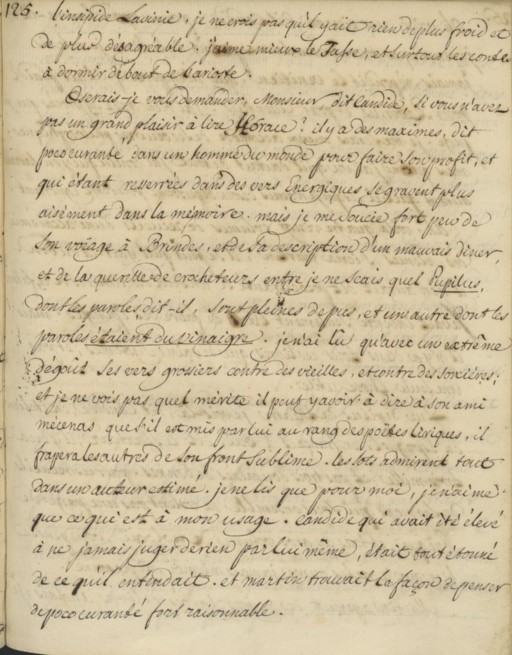 125.
l'insipide Lavinie. je ne crois pas qu'il y ait rien de plus froid et
de plus desagréable. j'aime mieux le Tasse, et surtout les contes
à dormir debout de l'arioste.
Oserais-je vous demander, Monsieur, dit Candide, si vous n'avez
pas un grand plaisir à lire Horace? il y a des maximes, dit
pococuranté dans un homme du monde pour faire son profit, et
qui étant resserrées dans des vers Energiques se gravent plus
aisément dans la mémoire. mais je me soucie fort peu de
son voïage à Brindes, et de sa description d'un mauvais diner,
et de la querelle de crocheteurs entre je ne scais quel Pupilus,
dont les paroles dit-il, sont pleines de pus, et un autre dont les
paroles étaient du vinaigre. je n'ai lû qu'avec un extrême
dégoût ses vers grossiers contre des vieilles, et contre des sorcières;
et je ne vois pas quel mérite il peut y avoir à dire à son ami
mécenas que s'il est mis par lui au rang des poëtes liriques, il
frapera les autres de son front sublime. les sots admirent tout
dans un auteur estimé. je ne lis que pour moi, je n'aime
que ce qui est à mon usage. candide qui avait été élevé
à ne jamais juger de rien par lui même, était tout étonné
de ce qu'il entendait. et martin trouvait la façon de penser
de pococuranté fort raisonnable.